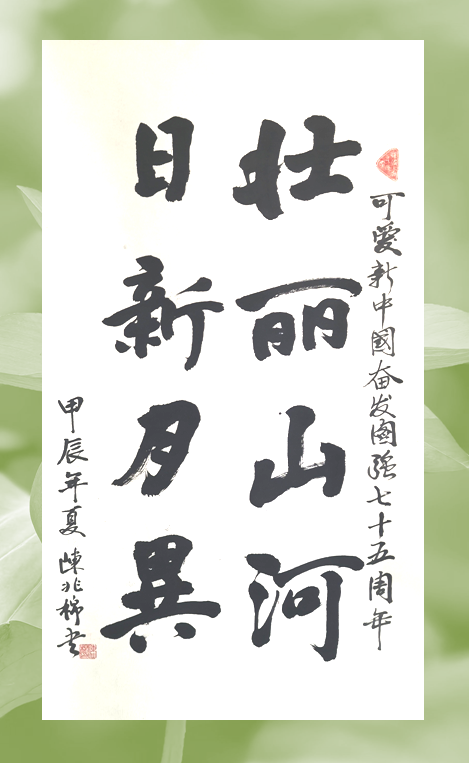 可愛新中國奋发图強七十五周年
壮丽山河
日新月異
甲辰年夏陳兆
书